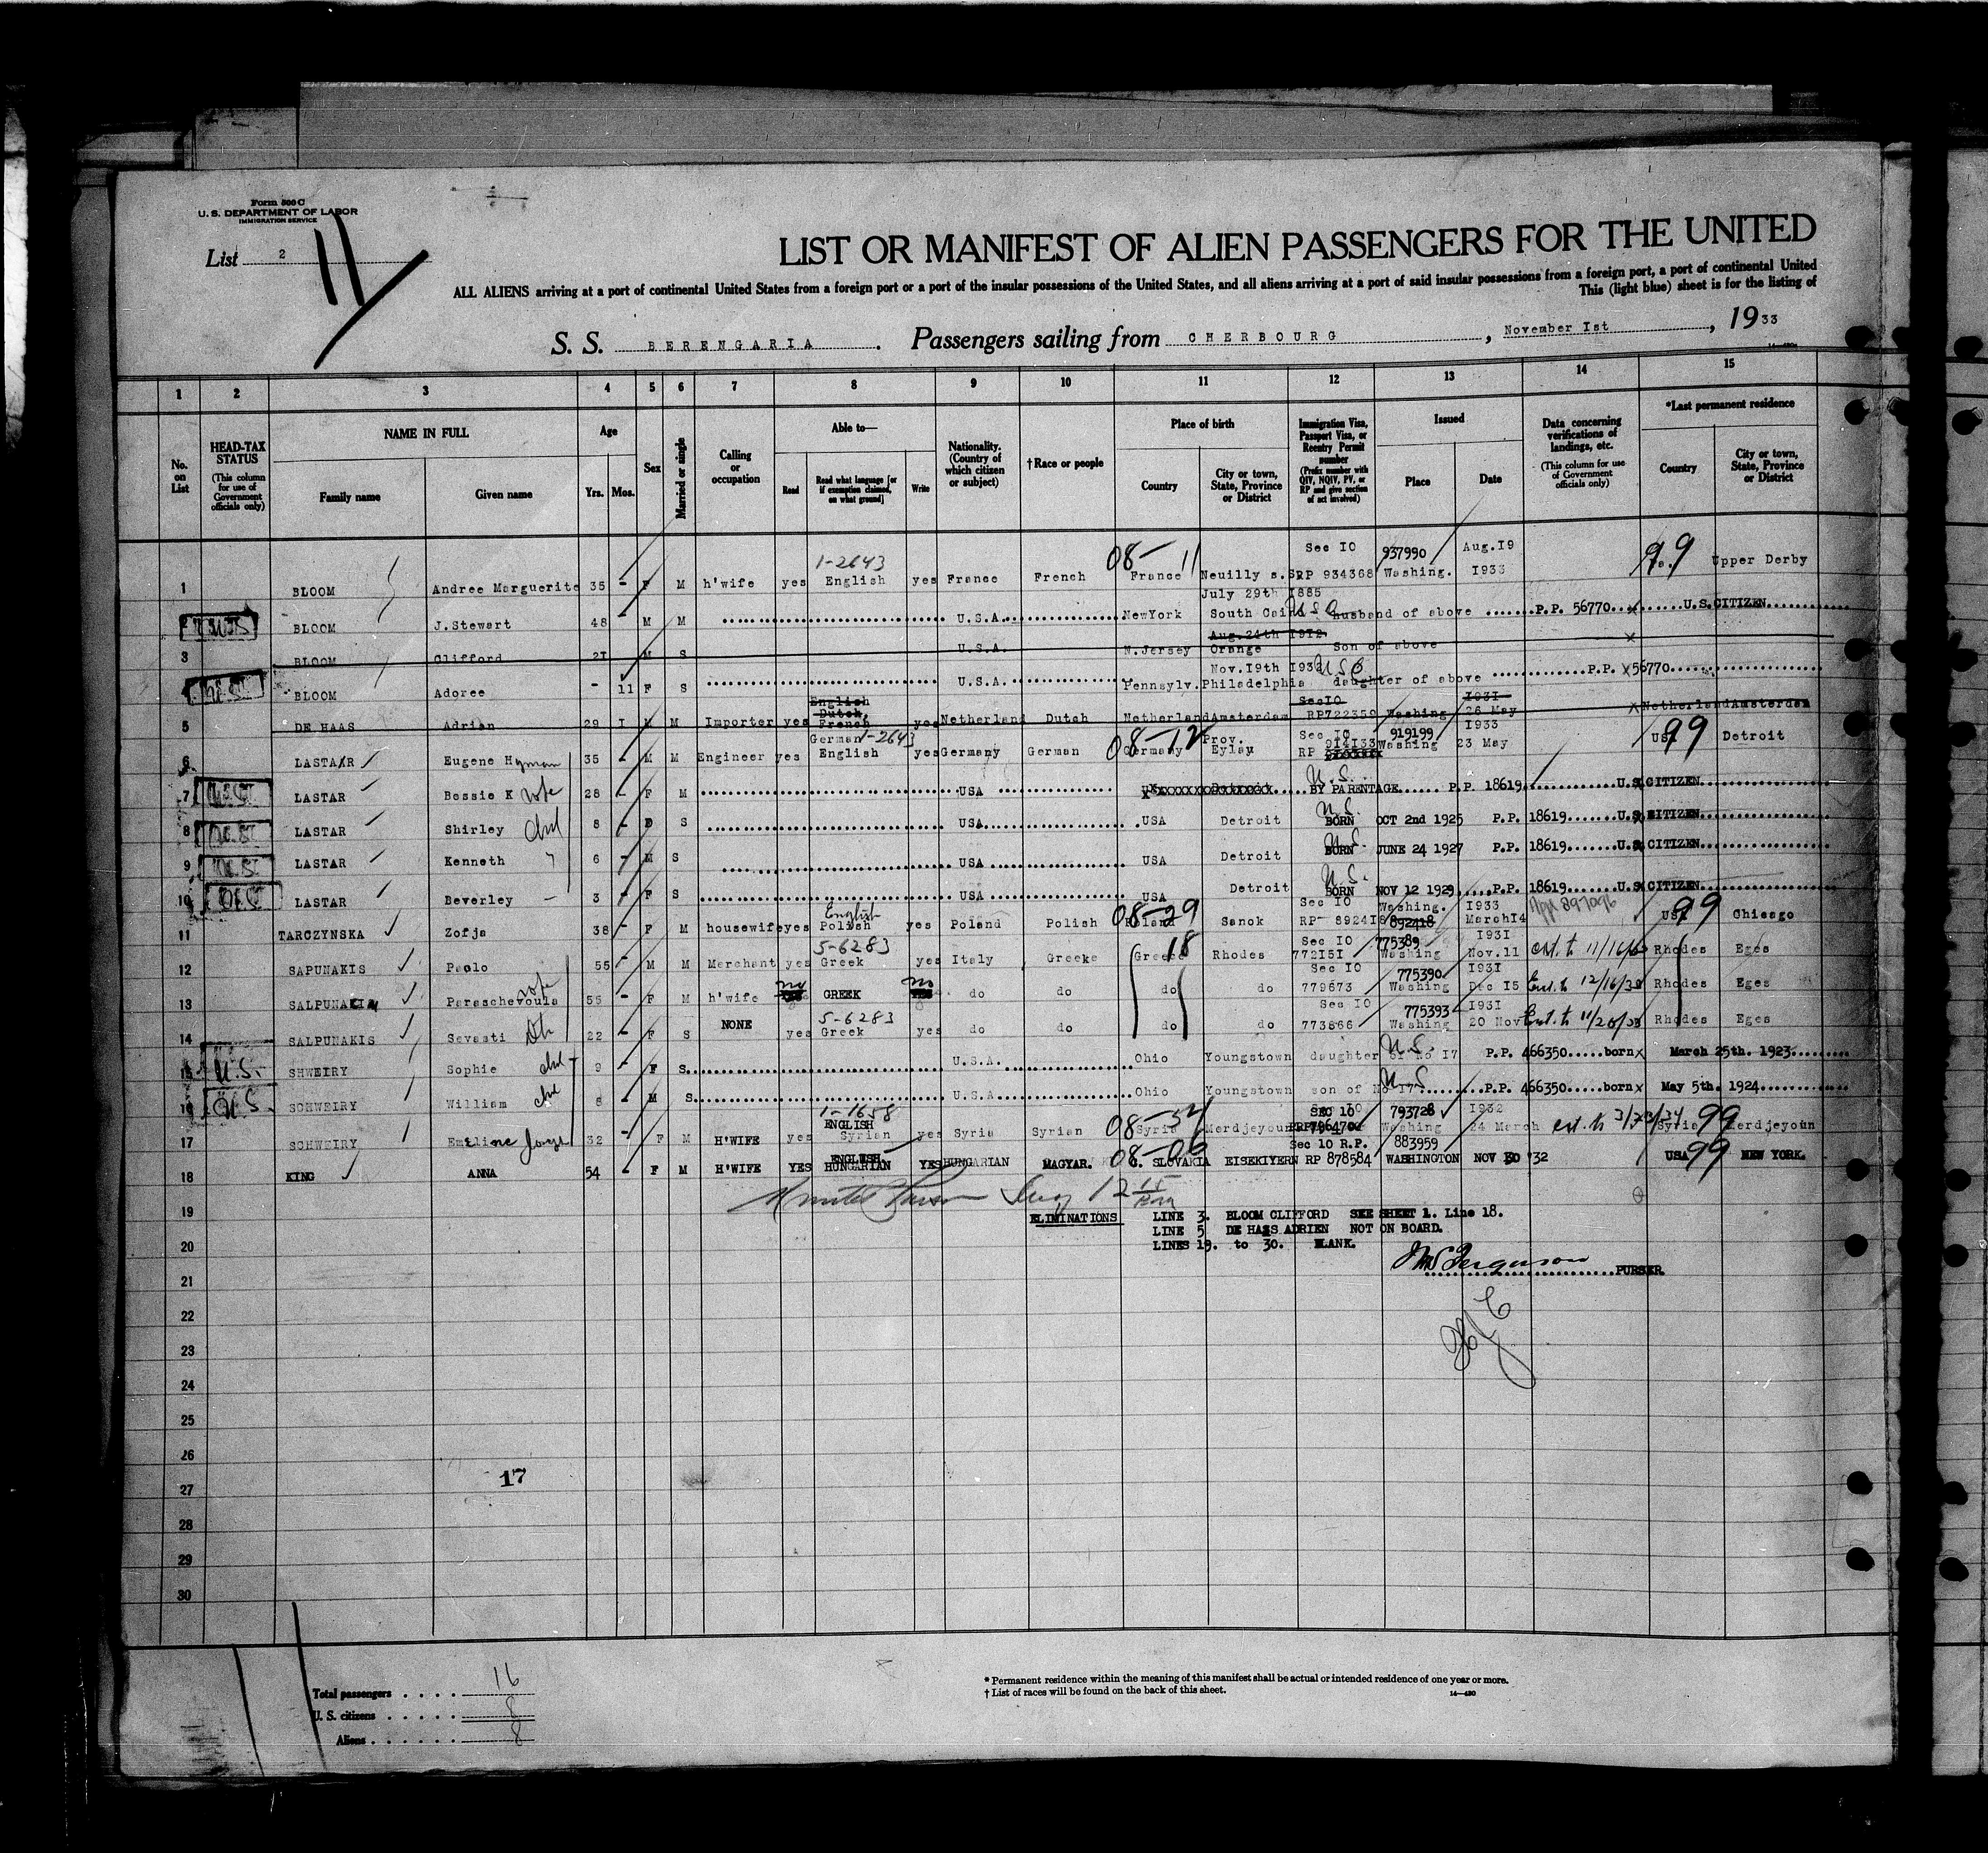 Form 500 C
U. S. DEPARTMENT OF LABOR
IMMIGRATION SERVICE
List 2
11
LIST OR MANIFEST OF ALIEN PASSENGERS FOR THE UNITED
ALL ALIENS arriving at a port of continental United States from a foreign port or a port of the insular possessions of the United States, and all aliens arriving at a port of said insular possessions from a foreign port, a port of continental United
This (light blue) sheet is for the listing of
S. S. BERENGARIA. Passengers sailing from CHERBOURG, November Ist, 1933
1 2 3 4 5 6 7 8 9 10 11 12 13 14 15
No. on List
HEAD-TAX STATUS (This column for use of Government officials only)
NAME IN FULL
Family name
Given name
Age
Yrs. Mos.
Sex
Married or single
Calling or occupation
Able to—
Read
Read what language [or if exemption claimed, on what ground]
Write
Nationality. (Country of which citizen or subject)
†Race or people
Place of birth
Country
City or town, State, Province or District
Immigration Visa, Passport Visa, or Reentry Permit number (Prefix number with QIV, NQIV, PV, or RP and give section of act involved)
Issued
Place
Date
Data concerning verifications of landings, etc. (This column for use of Government officials only)
*Last permanent residence
Country
City or town, State, Province or District
1-2643 08-11 Sec IO 937990 Aug.I9 99
1 BLOOM Andree Marguerite 35 - F M h'wife yes English yes France French France Neuilly s.S RP 934368 Washing. I933 Upper Derby
July 29th I885
2 BLOOM J.Stewart 48 - M M U.S.A. NewYork South Husband of above P.P. 56770 x U.S.CITIZEN
Aug.24th I9I2 x
3 BLOOM Clifford 2I M S U.S.A. N.Jersey Orange Son of above
Nov.I9th I932 USC
4 BLOOM Adoree - 11 F S U.S.A. Pennsylv. Philadelphia daughter of above P.P. x 56770
English Dutch, SecIO I93I
5 DE HAAS Adrian 29 I M M Importer yes French yes Netherland Dutch Netherland Amsterdam RP722359 Washing 26 May x Netherland Amsterdam
German 1-2643 08-12 Prov. Sec IO 919199 I933 99
6 LASTAR Eugene Hyman 35 - M M Engineer yes English yes Germany German Germany Eylau RP 914133 Washing 23 May US Detroit
U.S.
7 LASTAR Bessie K wife 28 - F M USA BY PARENTAGE P.P. 18619 U.S CITIZEN
U.S.
8 LASTAR Shirley chd 8 - S USA USA Detroit BORN OCT 2nd 1925 P.P. 18619 U.S CITIZEN
U.S.
9 LASTAR Kenneth " 6 - M S USA USA Detroit BORN JUNE 24 1927 P.P. 18619 U.S CITIZEN
U.S.
10 LASTAR Beverley - 3 - F S USA USA Detroit BORN NOV 12 1929 P.P. 18619 U.S CITIZEN
English 08-29 Sec IO Washing. I933 99
11 TARCZYNSKA Zofja 38 - F M housewife yes Polish yes Poland Polish Poland Sanok RP- 892418 892418 March14 US Chicago
5-6283 18 Sec IO 775389 I93I
12 SAPUNAKIS Paolo 55 - M M Merchant yes Greek yes Italy Greeke Greece Rhodes 772I5I Washing Nov.11 Rhodes Eges
wife no no Sec IO 775390 I93I
13 SALPUNAKIS Paraschevoula 55 - F M h'wife GREEK do do do do 779673 Washing Dec I5 Ext. to 12/16/33 Rhodes Eges
NONE 5-6283 Sec IO 775393 I93I
14 SALPUNAKIS Sevasti Dtr 22 - F S yes Greek yes do do do do 773866 Washing 20 Nov Rhodes Eges
15 U.S. SHWEIRY Sophie chd 9 - F S U.S.A. Ohio Youngstown daughter of No I7 U.S. P.P. 466350 born x March 25th. 1923
16 U.S. SCHWEIRY William chd 8 - M S U.S.A Ohio Youngstown son of No I7 U.S P.P. 466350 born x May 5th. 1924
1-1658 ENGLISH 08-54 SEC 10 793728 I932 99
17 SCHWEIRY Emeline 32 - F M H'WIFE yes Syrian yes Syria Syrian Syria Merdjeyoun Washing 24 March Syria Merdjeyoun
ENGLISH. 08-06 Sec 10 R.P. 883959 99
18 KING ANNA 54 - F M H'WIFE YES HUNGARIAN YES HUNGARIAN MAGYAR. C. SLOVAKIA EISEKIYERN RP 878584 WASHINGTON NOV 30 '32 USA NEW YORK.
19 ELIMINATIONS LINE 3. BLOOM CLIFFORD SEE SHEET 1. Line 18.
LINE 5 DE HAAS ADRIEN NOT ON BOARD.
20 LINES 19. to 30. BLANK.
Ferguson PURSER.
21
22
23
24
25
26
27 17
28
29
30
Total passengers 16
U. S. citizens 8
Aliens 8
* Permanent residence within the meaning of this manifest shall be actual or intended residence of one year or more.
† List of races will be found on the back of this sheet. 14—430